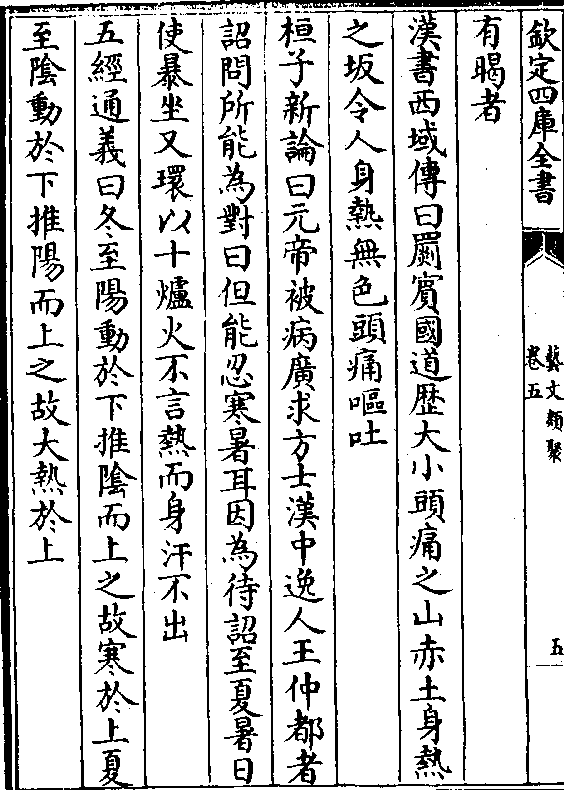 欽定四庫全書
藝文類聚
卷五
五
有暍者
漢書西域傳曰罽賓國道歴大小頭痛之山赤土身熱
之坂令人身熱無色頭痛嘔吐
桓子新論曰元帝被病廣求方士漢中逸人王仲都者
詔問所能為對曰但能忍寒暑耳因為待詔至夏暑日
使暴坐又環以十爐火不言熱而身汗不出
五經通義曰冬至陽動於下推陰而上之故寒於上夏
至陰動於下推陽而上之故大熱於上